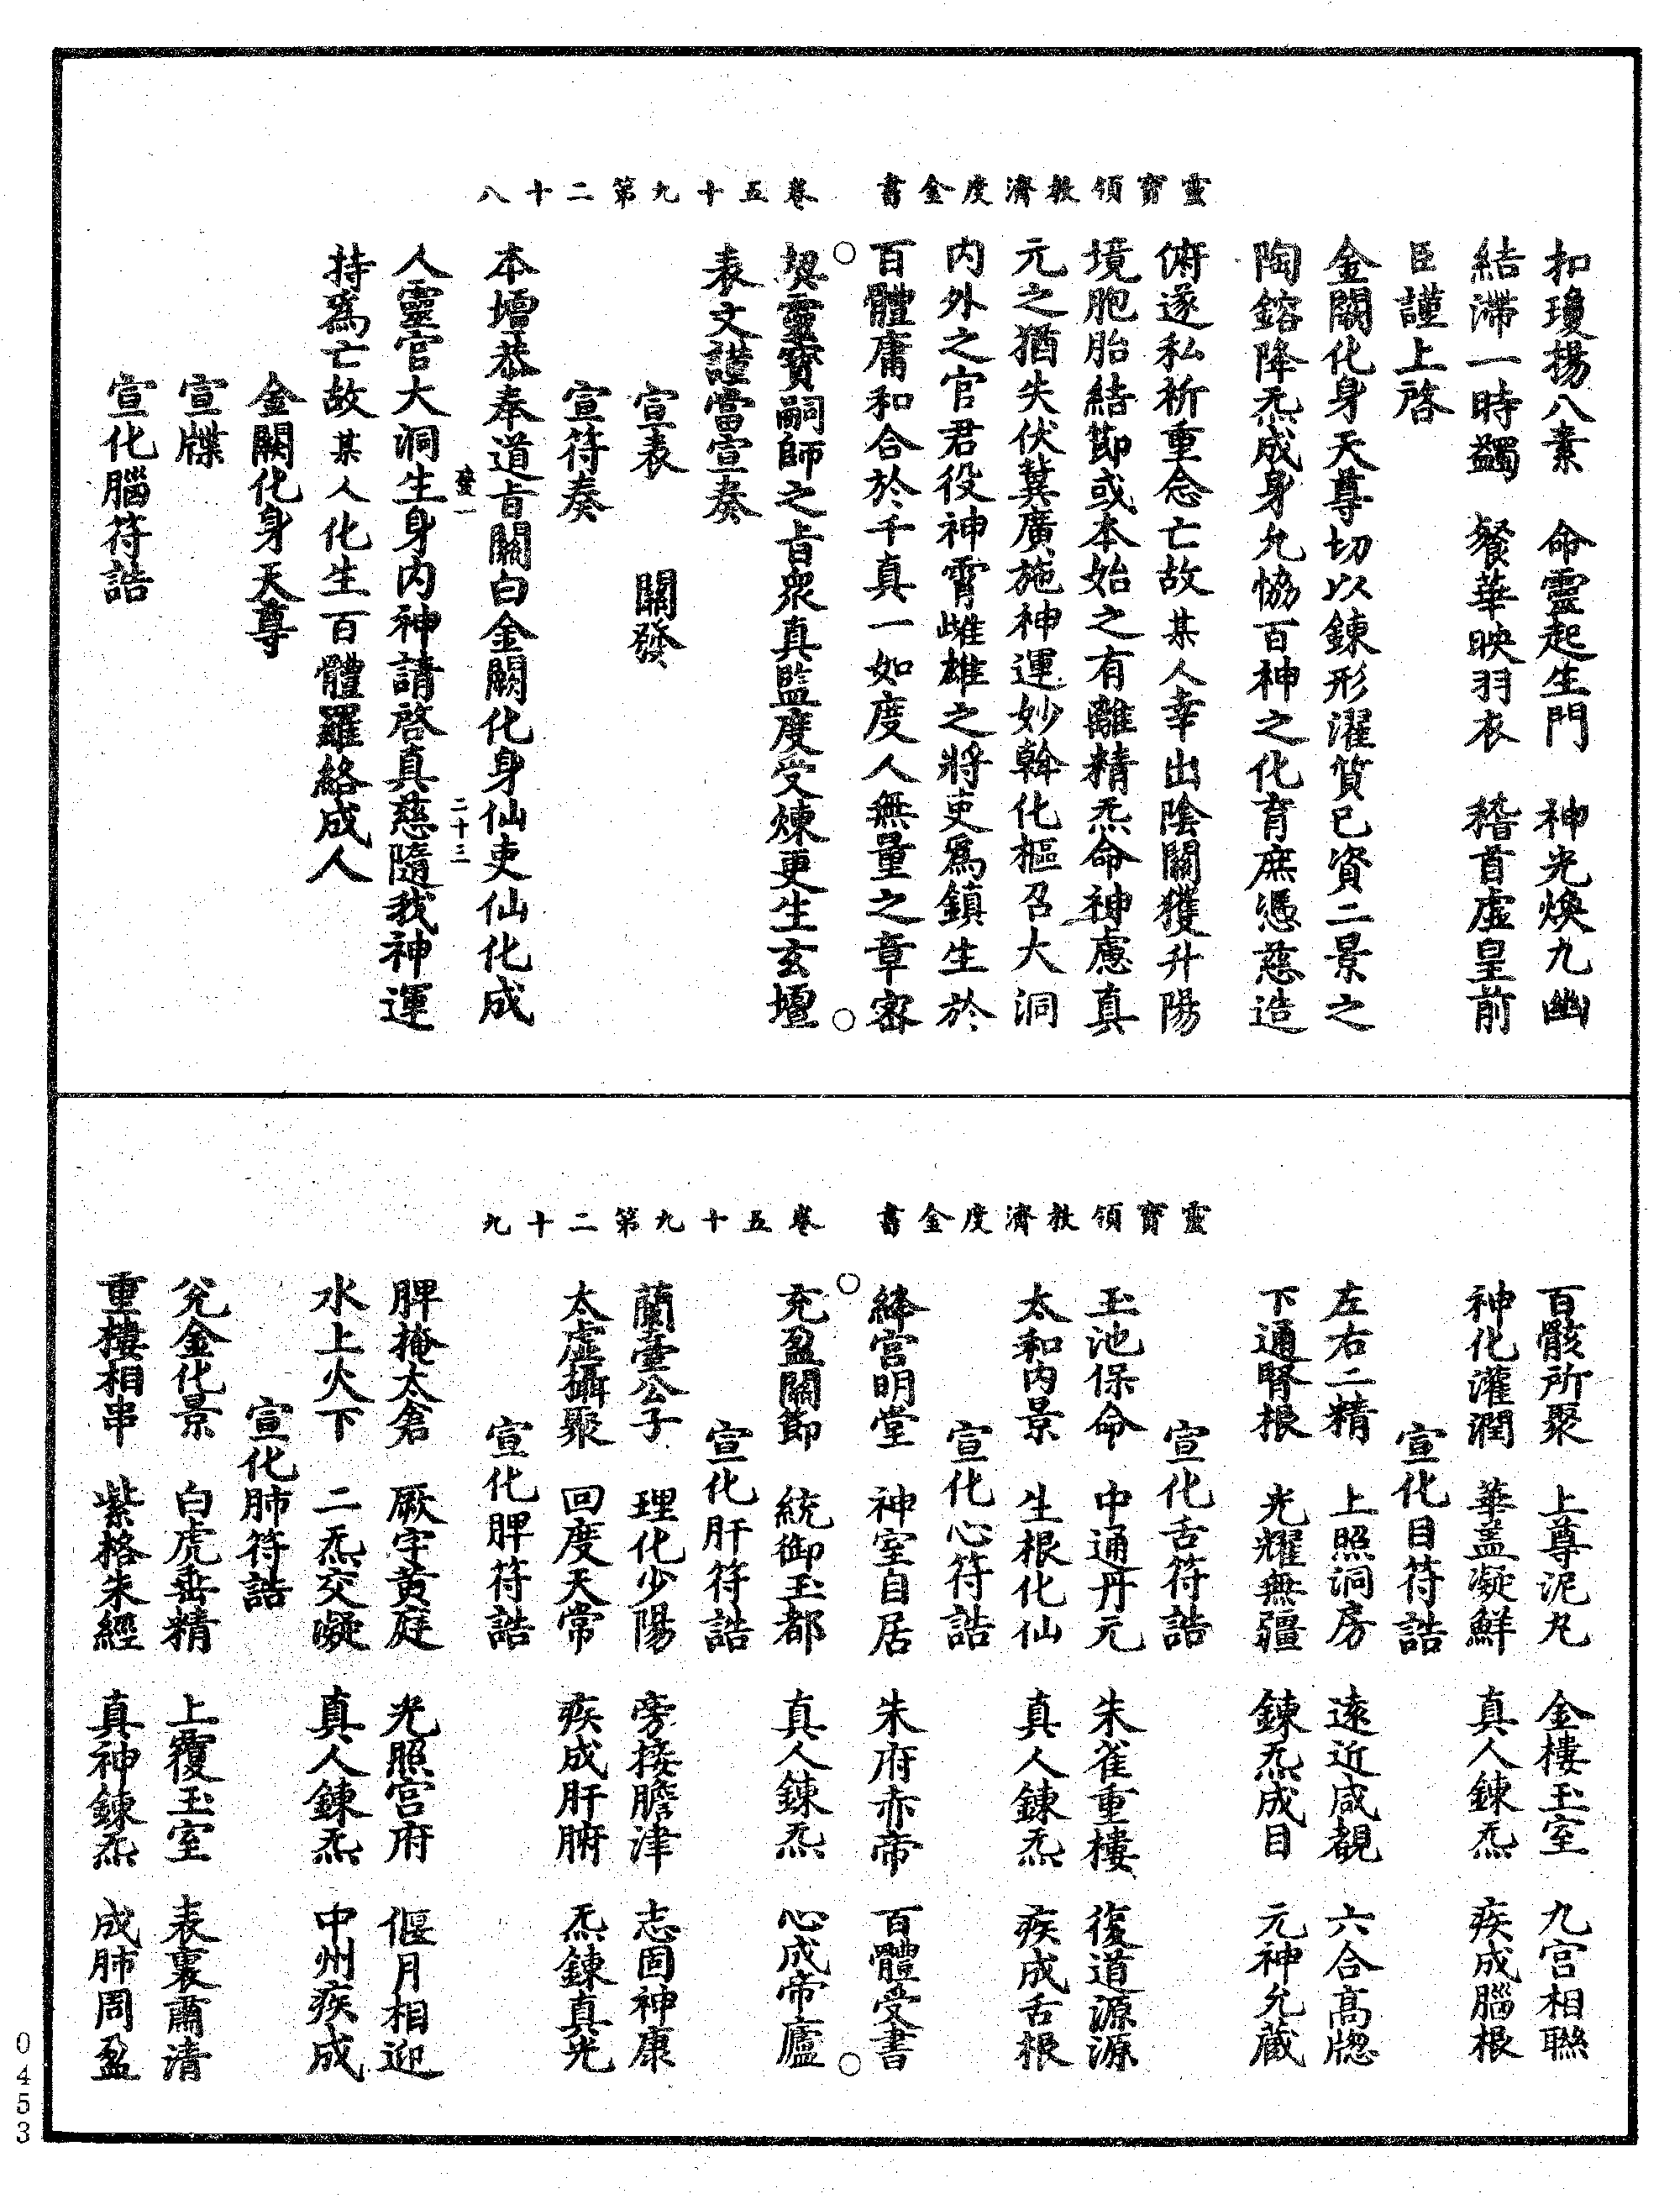 靈寶領教濟度金書　卷五十九第二十八
扣瓊揚八素　命靈起生門　神光煥九幽
結滯一時蠲　餐華映羽衣　稽首虛皇前
臣謹上啓
金闕化身天尊切以鍊形濯質已資二景之
陶鎔降炁成身允協百神之化育庶憑慈造
俯遂私祈重念亡故某人幸出陰關獲升陽
境胞胎結節或本始之有離精炁命神慮真
元之猶失伏冀廣施神運妙斡化樞召大洞
内外之官君役神霄雌雄之將吏爲鎮生於
百體庸和合於千真一如度人無量之章密
契靈寶嗣師之旨衆真監度受煉更生玄壇
表文謹當宣奏
宣表　　關發
宣符奏
本壇恭奉道旨關白金闕化身仙吏仙化成
二十三
人靈官大洞生身内神請啓真慈隨我神運
持爲亡故某人化生百體羅絡成人
金闕化身天尊
宣牒
宣化腦符誥
靈寶領教濟度金書　卷五十九第二十九
百骸所聚　上尊泥丸　金樓玉室　九宫相聯
神化灌潤　華蓋凝鮮　真人鍊炁　疾成腦根
宣化目符誥
左右二精　上照洞房　遠近咸覩　六合高牕
下通腎根　光耀無疆　鍊炁成目　元神允藏
宣化舌符誥
玉池保命　中通丹元　朱雀重樓　復道源源
太和内景　生根化仙　真人鍊炁　疾成舌根
宣化心符誥
絳宫明堂　神室自居　朱府赤帝　百體受書
充盈關節　統御玉都　真人鍊炁　心成帝廬
宣化肝符誥
蘭臺公子　理化少陽　旁接膽津　志固神康
太虛攝聚　回度天常　疾成肝腑　炁鍊真光
宣化脾符誥
脾掩太倉　厥字黄庭　光照宫府　偃月相迎
水上火下　二炁交凝　真人鍊炁　中州疾成
宣化肺符誥
兌金化景　白虎垂精　上覆玉室　表裏肅清
重樓相串　紫格朱經　真神鍊炁　成肺周盈
0453